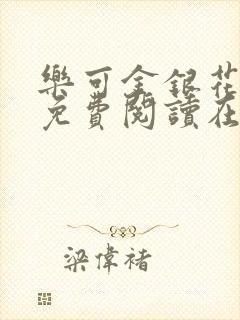 樂可金銀花
免費閱讀在
梁偉褚